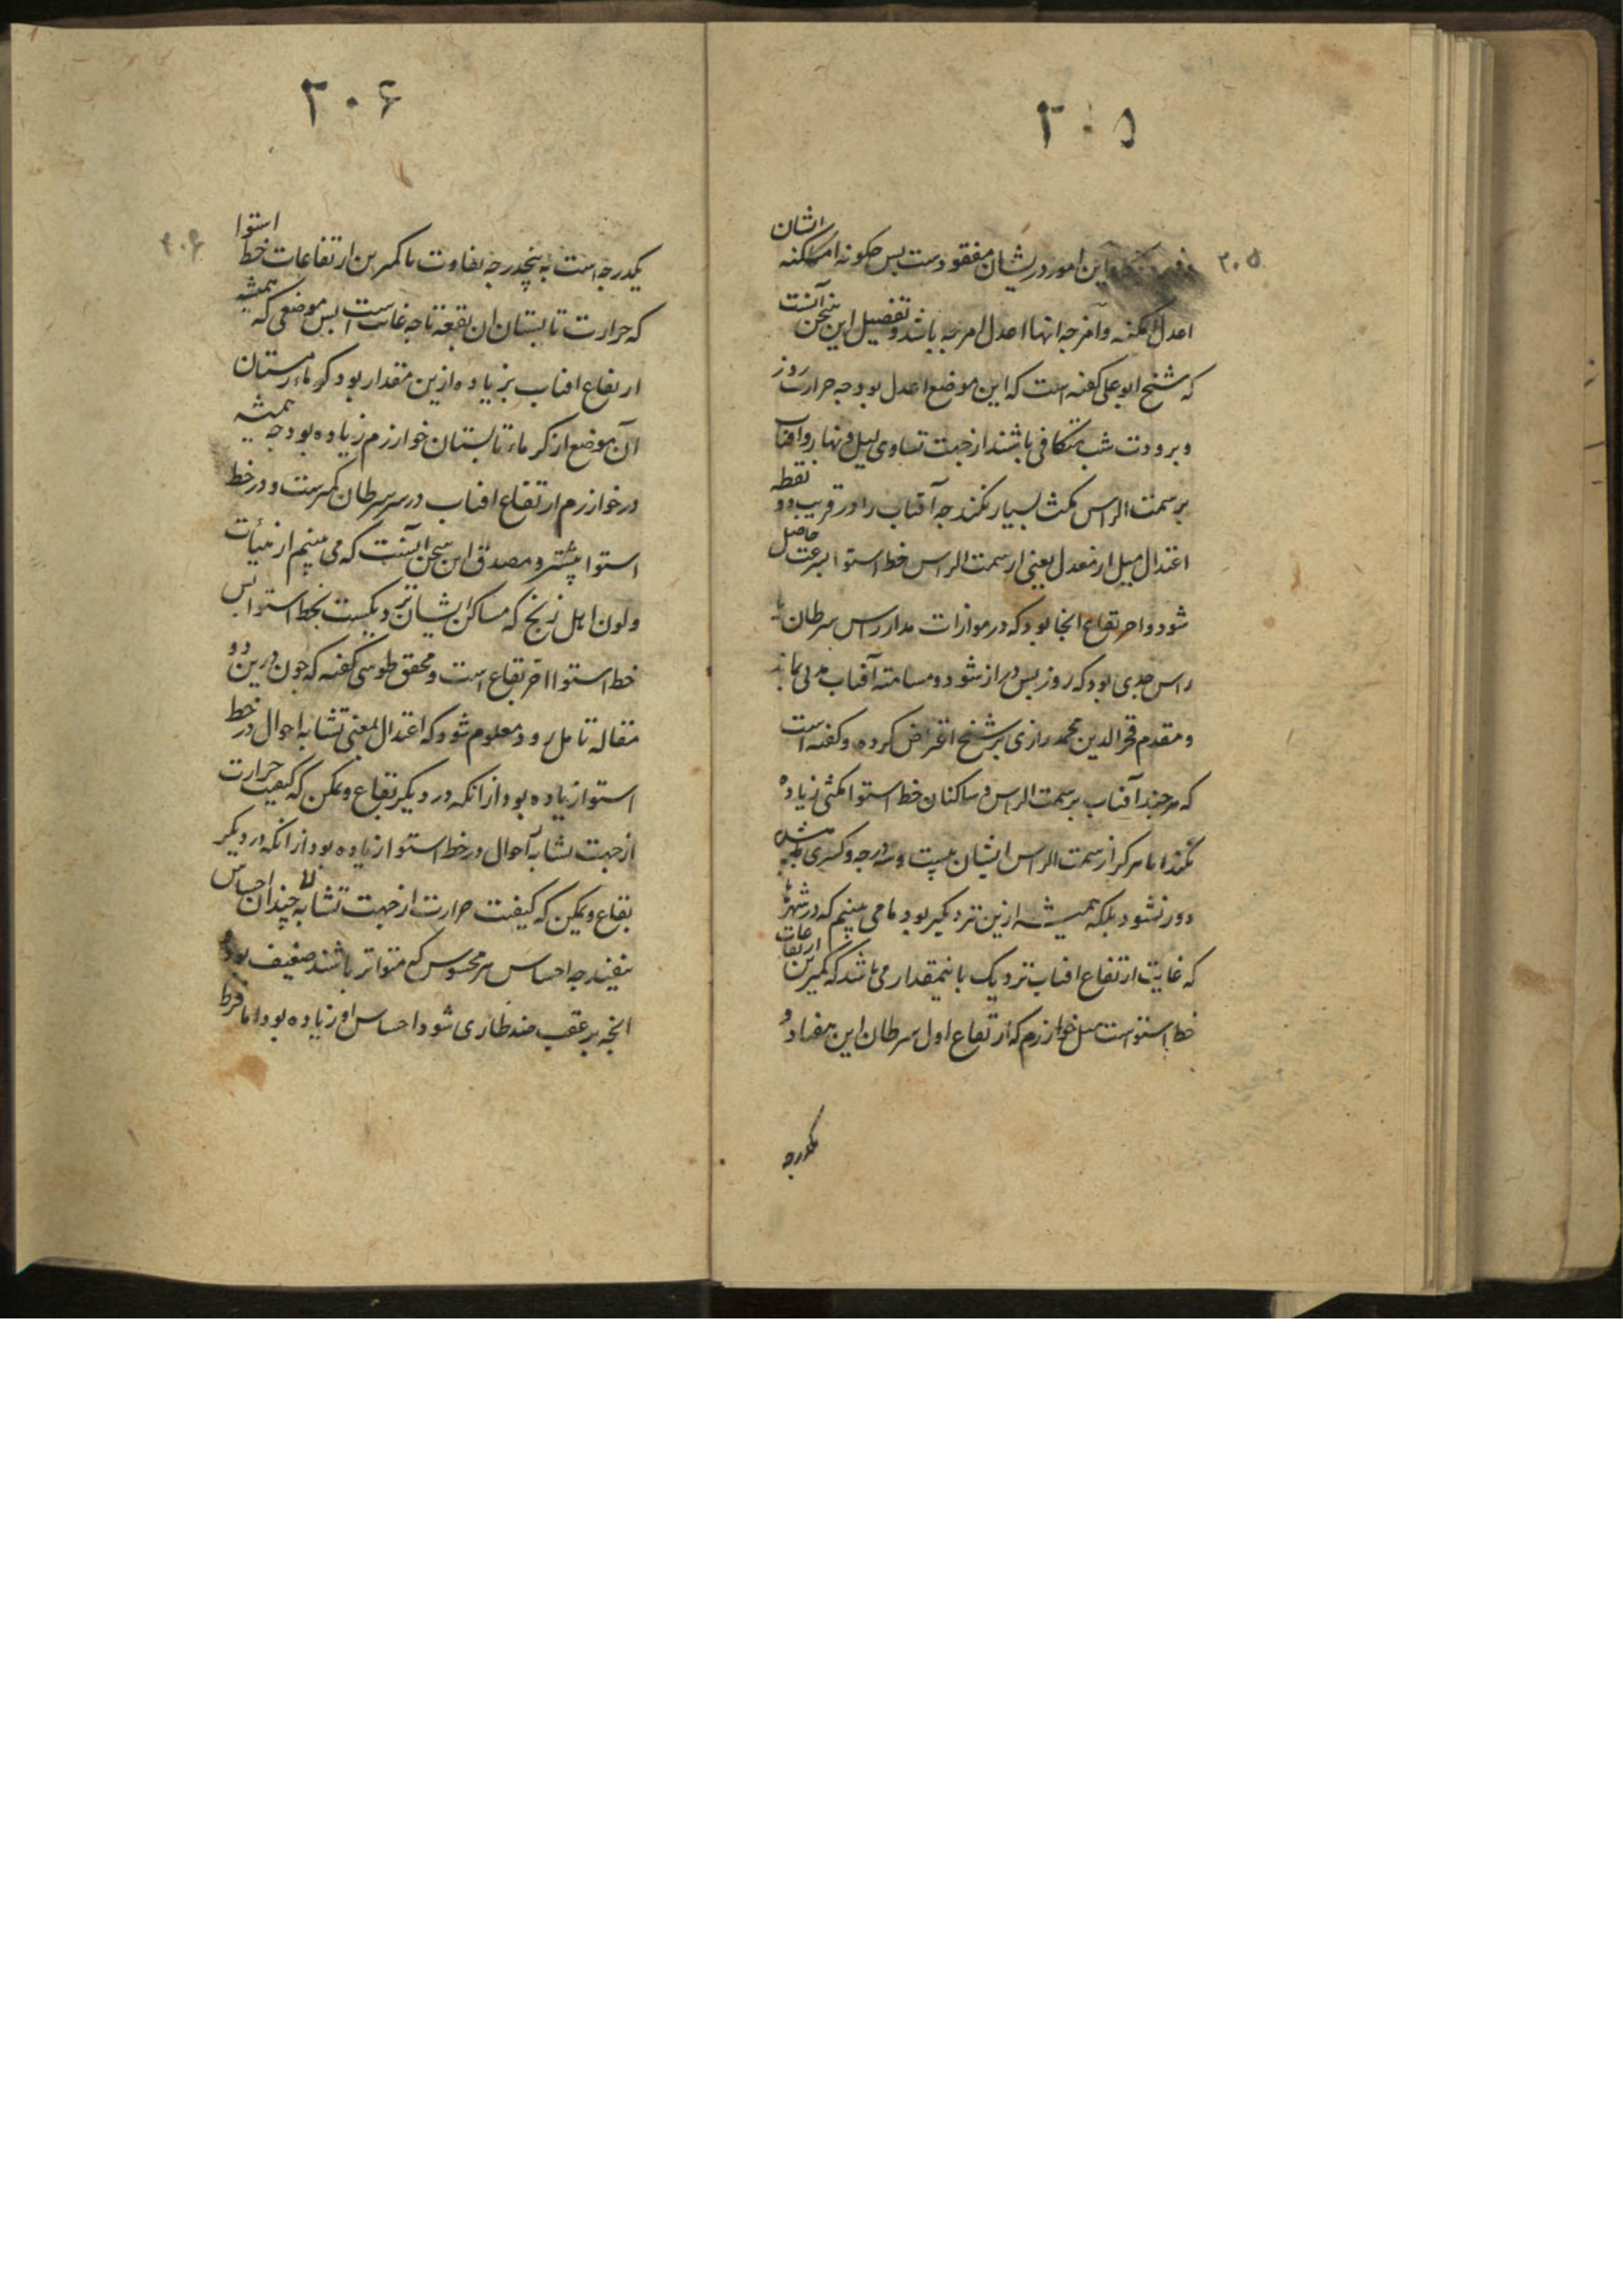 ۲۰۵
۲۰۵
این امور در یشان مفقودست بس چکونه امکنه ایشان
اعدل امکنه و امزجه انها اعدل امزجه باشد و تفصیل این سخن آنست
که شیخ ابو علی کفته است که این موضع اعدل بود چه حرارت روز
و برودت شب متکافی باشند از جهت تساوی لیل و نهار و افتاب
بر سمت الراس مکث بسیار نکند چه آفتاب را در قرب دو نقطه
اعتدال میل از معدل یعنی از سمت الراس خط استوا بسرعت حاصل
شود و احر بقاع انجا بود که در موازات مدار راس سرطان یا
راس جدی بود که روز بس دراز شود و مسامته آفتاب مدتی بماند
و مقدم فخر الدین محمد رازی بر شیخ اعتراض کرده و کفته است
که هر چند آفتاب بر سمت الراس ساکنان خط استوا مکثی زیاده
نکند اما هرکز از سمت الراس ایشان بیست و سه درجه و کسری بیش
دور نشود بلکه همیشه ازین نزدیکتر بود و ما می بینیم که در شهرها
که غایت ارتفاع افتاب نزدیک باینمقدار می باشد که کمترین ارتفاعات
خط استواست مثل خوارزم که ارتفاع اول سرطان این هفتاد و
یکدرجه
۲۰۶
۲۰۶
یکدرجه است به پنجدرجه تفاوت با کمترین ارتفاعات خط استوا
که حرارت تابستان ان بقعه تا چه غایت است بس موضعی که همیشه
ارتفاع افتاب بزیاده ازین مقدار بود کرماء زمستان
آن موضع از کرماء تابستان خوارزم زیاده بود چه همیشه
در خوارزم ارتفاع افتاب در سر سرطان کمترست و در خط
استوا بیشتر و مصدق این سخن آنست که می بینیم از هیئات
و لون اهل زنج که مساکن ایشان نزدیکست بخط استوا بس
خط استوا احر بقاع است و محقق طوسی کفته که چون درین دو
مقاله تامل رود معلوم شود که اعتدال بمعنی تشابه احوال در خط
استوا زیاده بود از انکه در دیکر بقاع و ممکن که کیفیت حرارت
از جهت تشابه احوال در خط استوا زیاده بود از انکه در دیکر
بقاع و یمکن که کیفیت حرارت از جهت تشابه چندان احساس
نیفتد چه احساس هر محسوس که متواتر باشند ضعیف بود
انچه بر عقب ضد طاری شود احساس او زیاده بود اما فرط